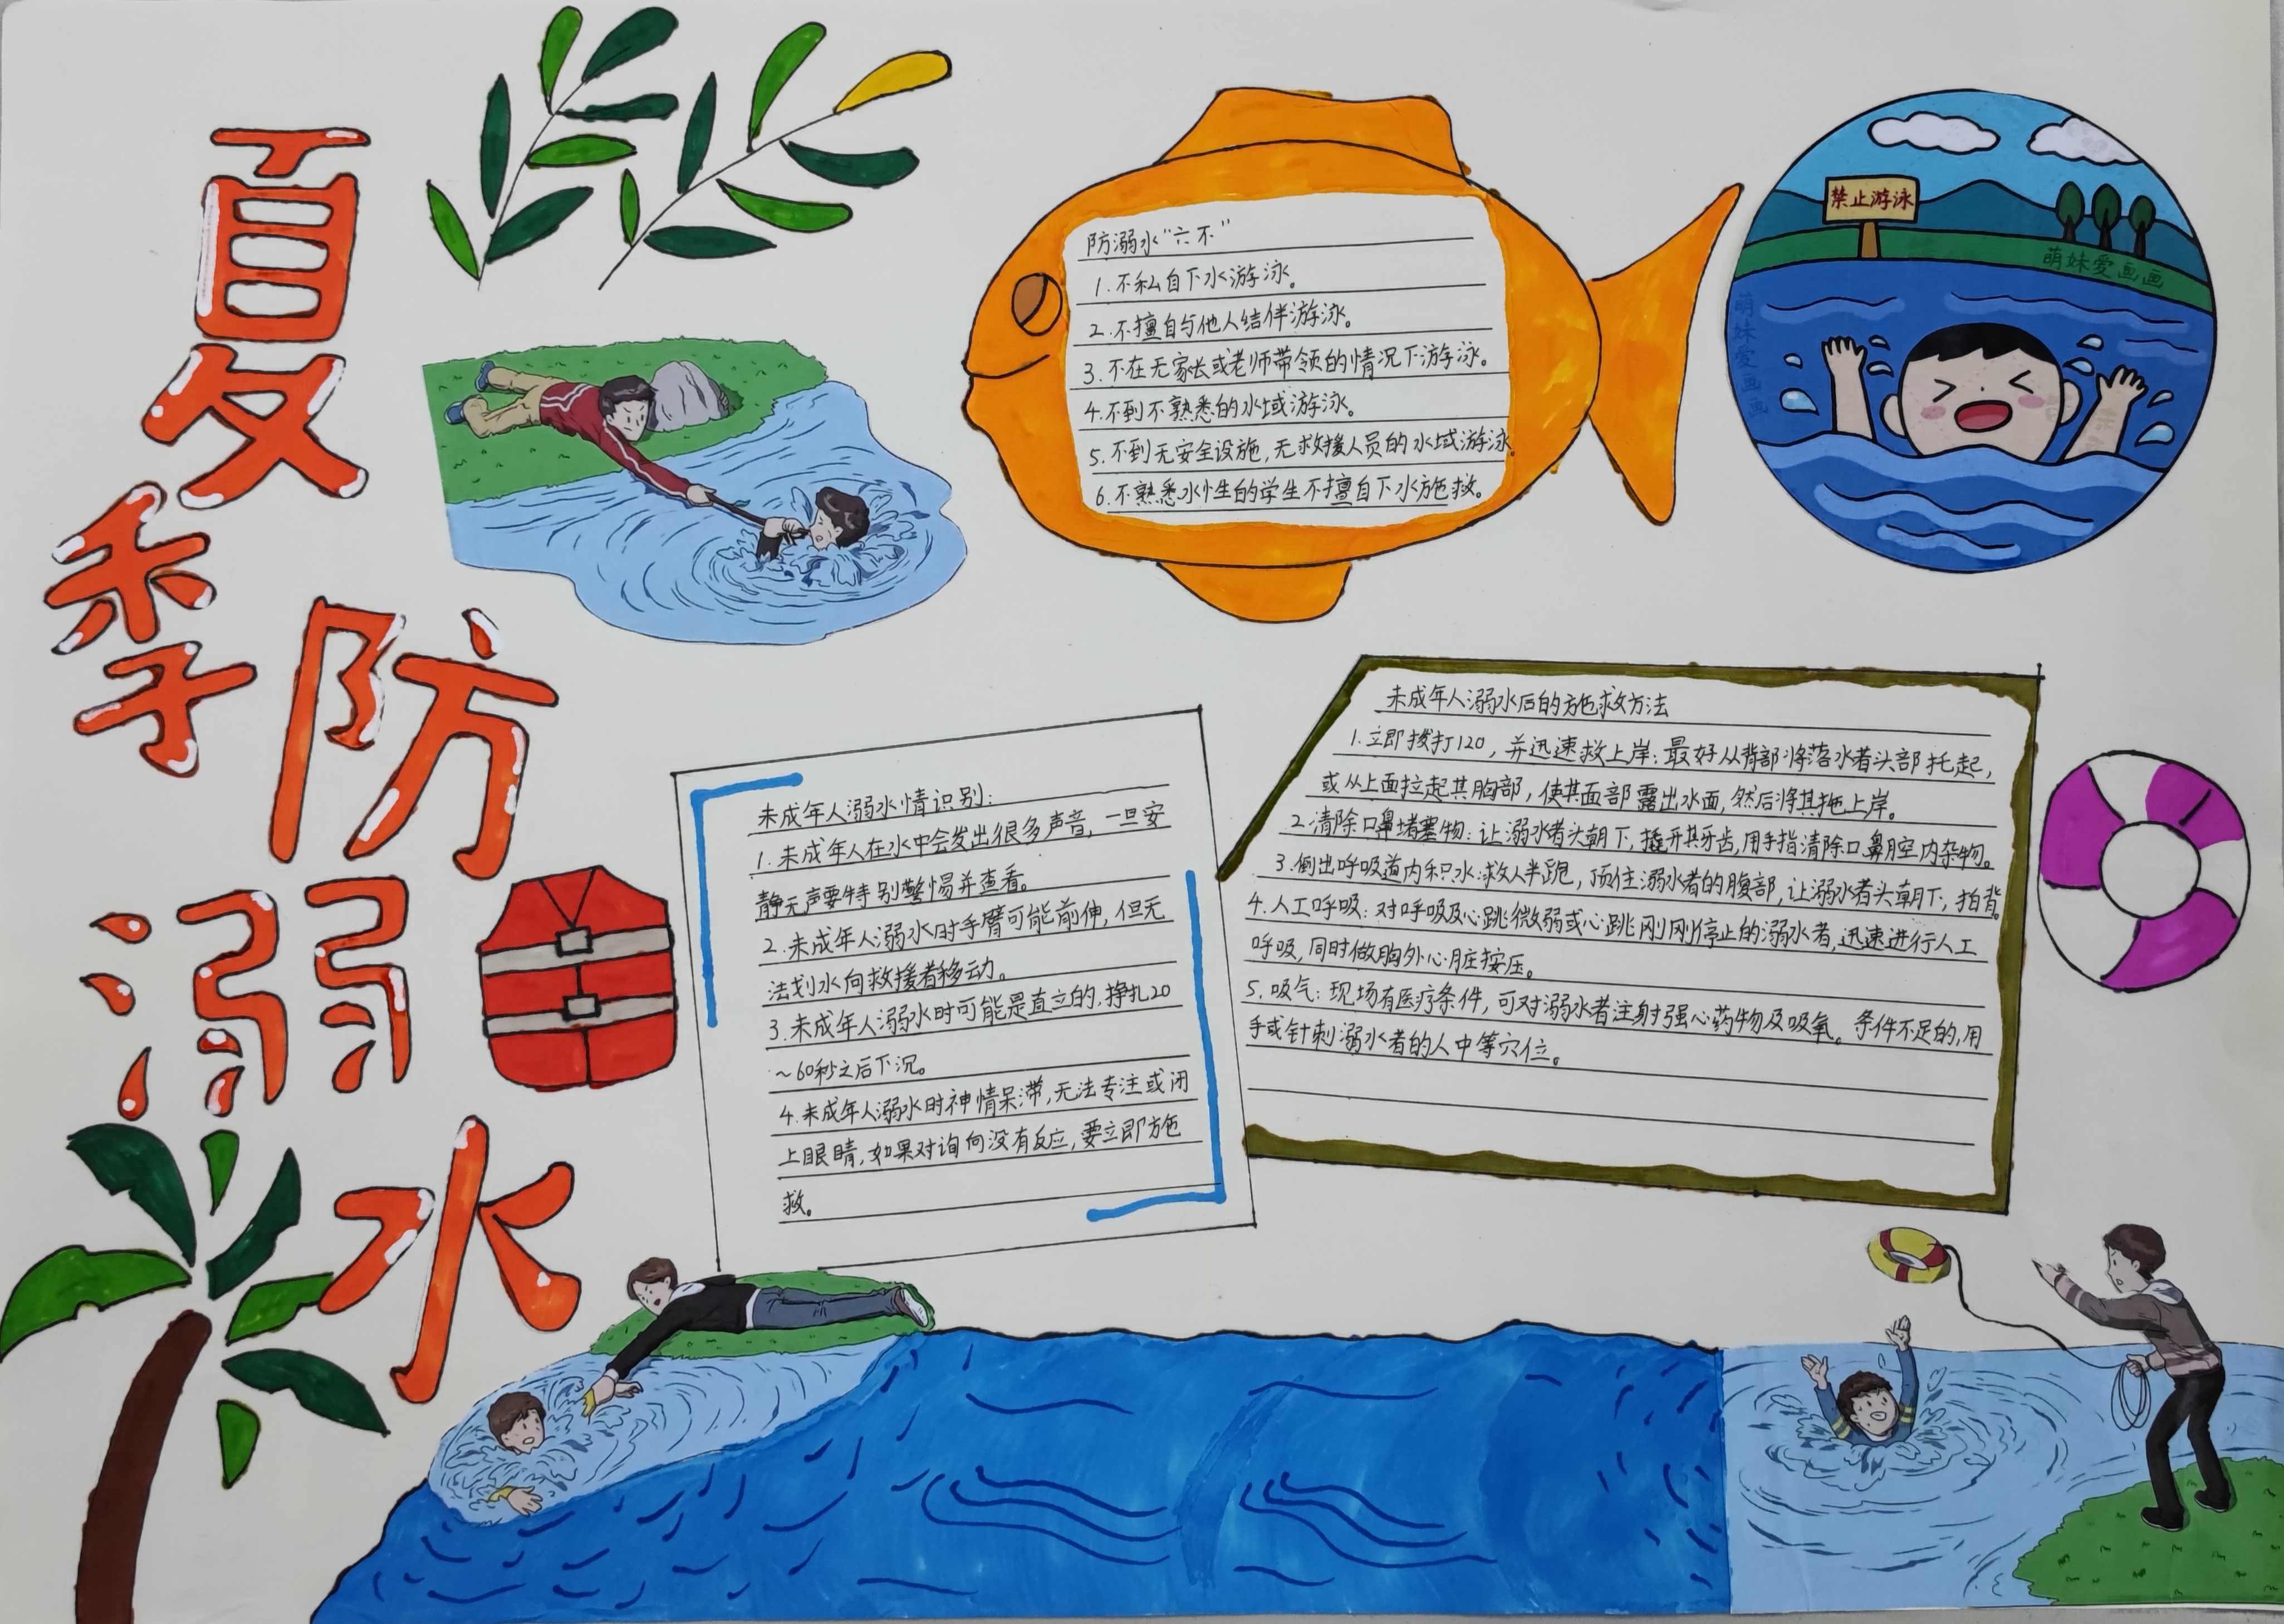 夏季防溺水
防溺水“六不”
1.不私自下水游泳。
2.不擅自与他人结伴游泳。
3.不在无家长或老师带领的情况下游泳。
4.不到不熟悉的水域游泳。
5.不到无安全设施,无救援人员的水域游泳。
6.不熟悉水性的学生不擅自下水施救。
禁止游泳
萌妹爱画画
萌妹爱画画
未成年人溺水情识别:
1.未成年人在水中会发出很多声音,一旦安
静无声要特别警惕并查看。
2.未成年人溺水时手臂可能前伸,但无
法划水向救援者移动。
3.未成年人溺水时可能是直立的,挣扎20
~60秒之后下沉。
4.未成年人溺水时神情呆滞,无法专注或闭
上眼睛,如果对询问没有反应,要立即施
救。
未成年人溺水后的施救方法
1.立即拨打120,并迅速救上岸:最好从背部将落水者头部托起,
或从上面拉起其胸部,使其面部露出水面,然后将其拖上岸。
2.清除口鼻堵塞物:让溺水者头朝下,撬开其牙齿,用手指清除口鼻腔内杂物。
3.倒出呼吸道内积水:救人半跪,顶住溺水者的腹部,让溺水者头朝下,拍背。
4.人工呼吸:对呼吸及心跳微弱或心跳刚刚停止的溺水者,迅速进行人工
呼吸,同时做胸外心脏按压。
5.吸气:现场有医疗条件,可对溺水者注射强心药物及吸氧。条件不足的,用
手或针刺溺水者的人中等穴位。